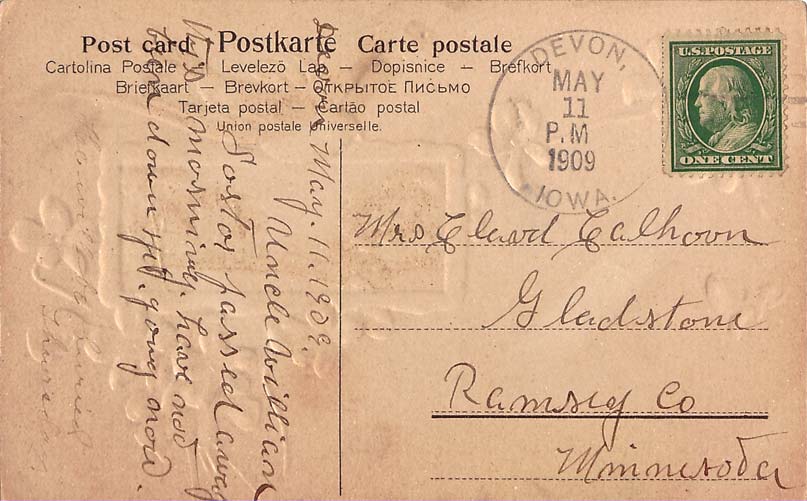 Post card Postkarte Carte postale
Cartolina Postale — Levelező Lap — Dopisnice — Brefkort
Briefkaart — Brevkort — Открытое Письмо
Tarjeta postal — Cartão postal
Union postale Universelle.
DEVON,
MAY
11
P.M
1909
IOWA.
U.S. POSTAGE
ONE CENT
Mrs Calhoun
Gladstone
Ramsey Co
Minnesota
Devon May. 11. 1909.
Uncle William
passed away
this morning. have not
been down yet. going now.